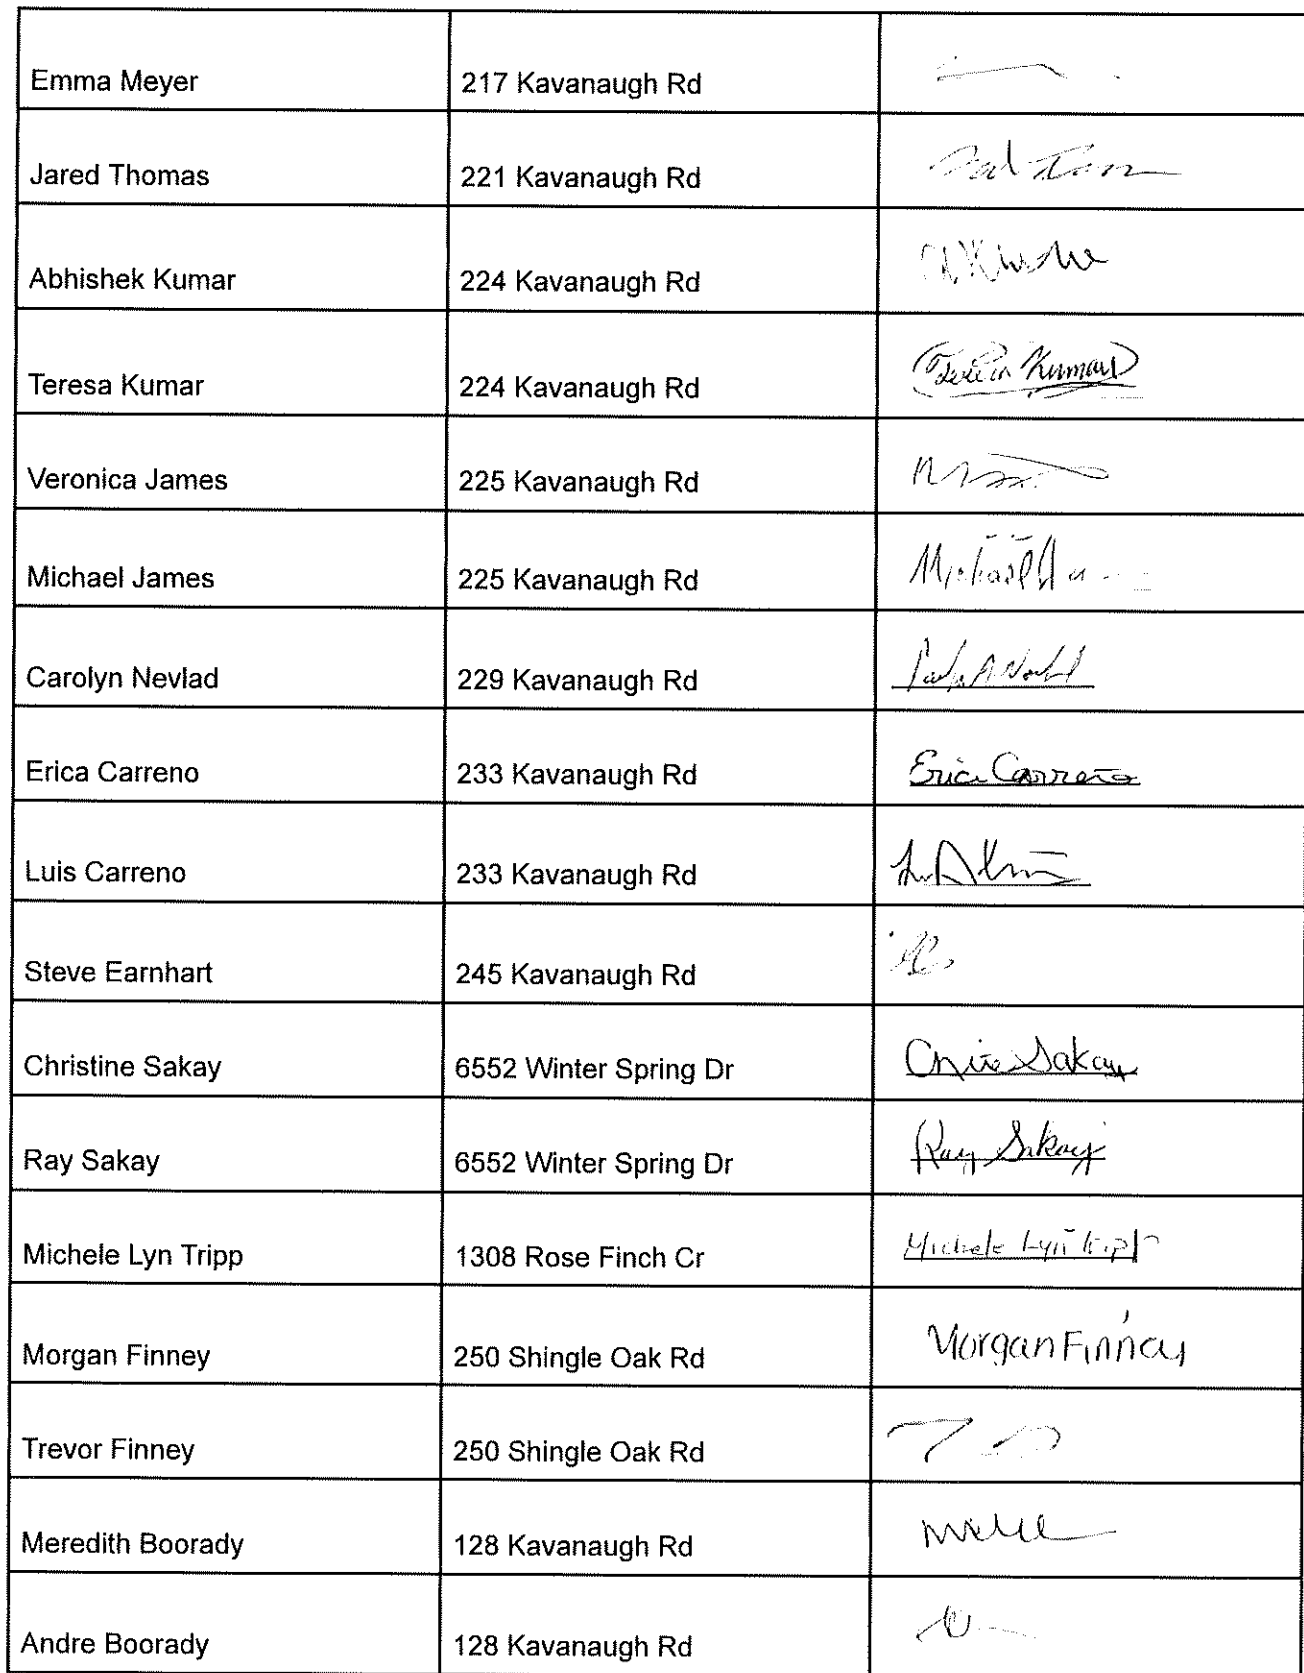 Emma Meyer 217 Kavanaugh Rd
Jared Thomas 221 Kavanaugh Rd
Abhishek Kumar 224 Kavanaugh Rd
Teresa Kumar 224 Kavanaugh Rd Teresa Kumar
Veronica James 225 Kavanaugh Rd
Michael James 225 Kavanaugh Rd Michael
Carolyn Nevlad 229 Kavanaugh Rd
Erica Carreno 233 Kavanaugh Rd Erica Carreño
Luis Carreno 233 Kavanaugh Rd
Steve Earnhart 245 Kavanaugh Rd
Christine Sakay 6552 Winter Spring Dr Sakay
Ray Sakay 6552 Winter Spring Dr Ray Sakay
Michele Lyn Tripp 1308 Rose Finch Cr Michele Lyn Tripp
Morgan Finney 250 Shingle Oak Rd Morgan Finney
Trevor Finney 250 Shingle Oak Rd
Meredith Boorady 128 Kavanaugh Rd
Andre Boorady 128 Kavanaugh Rd